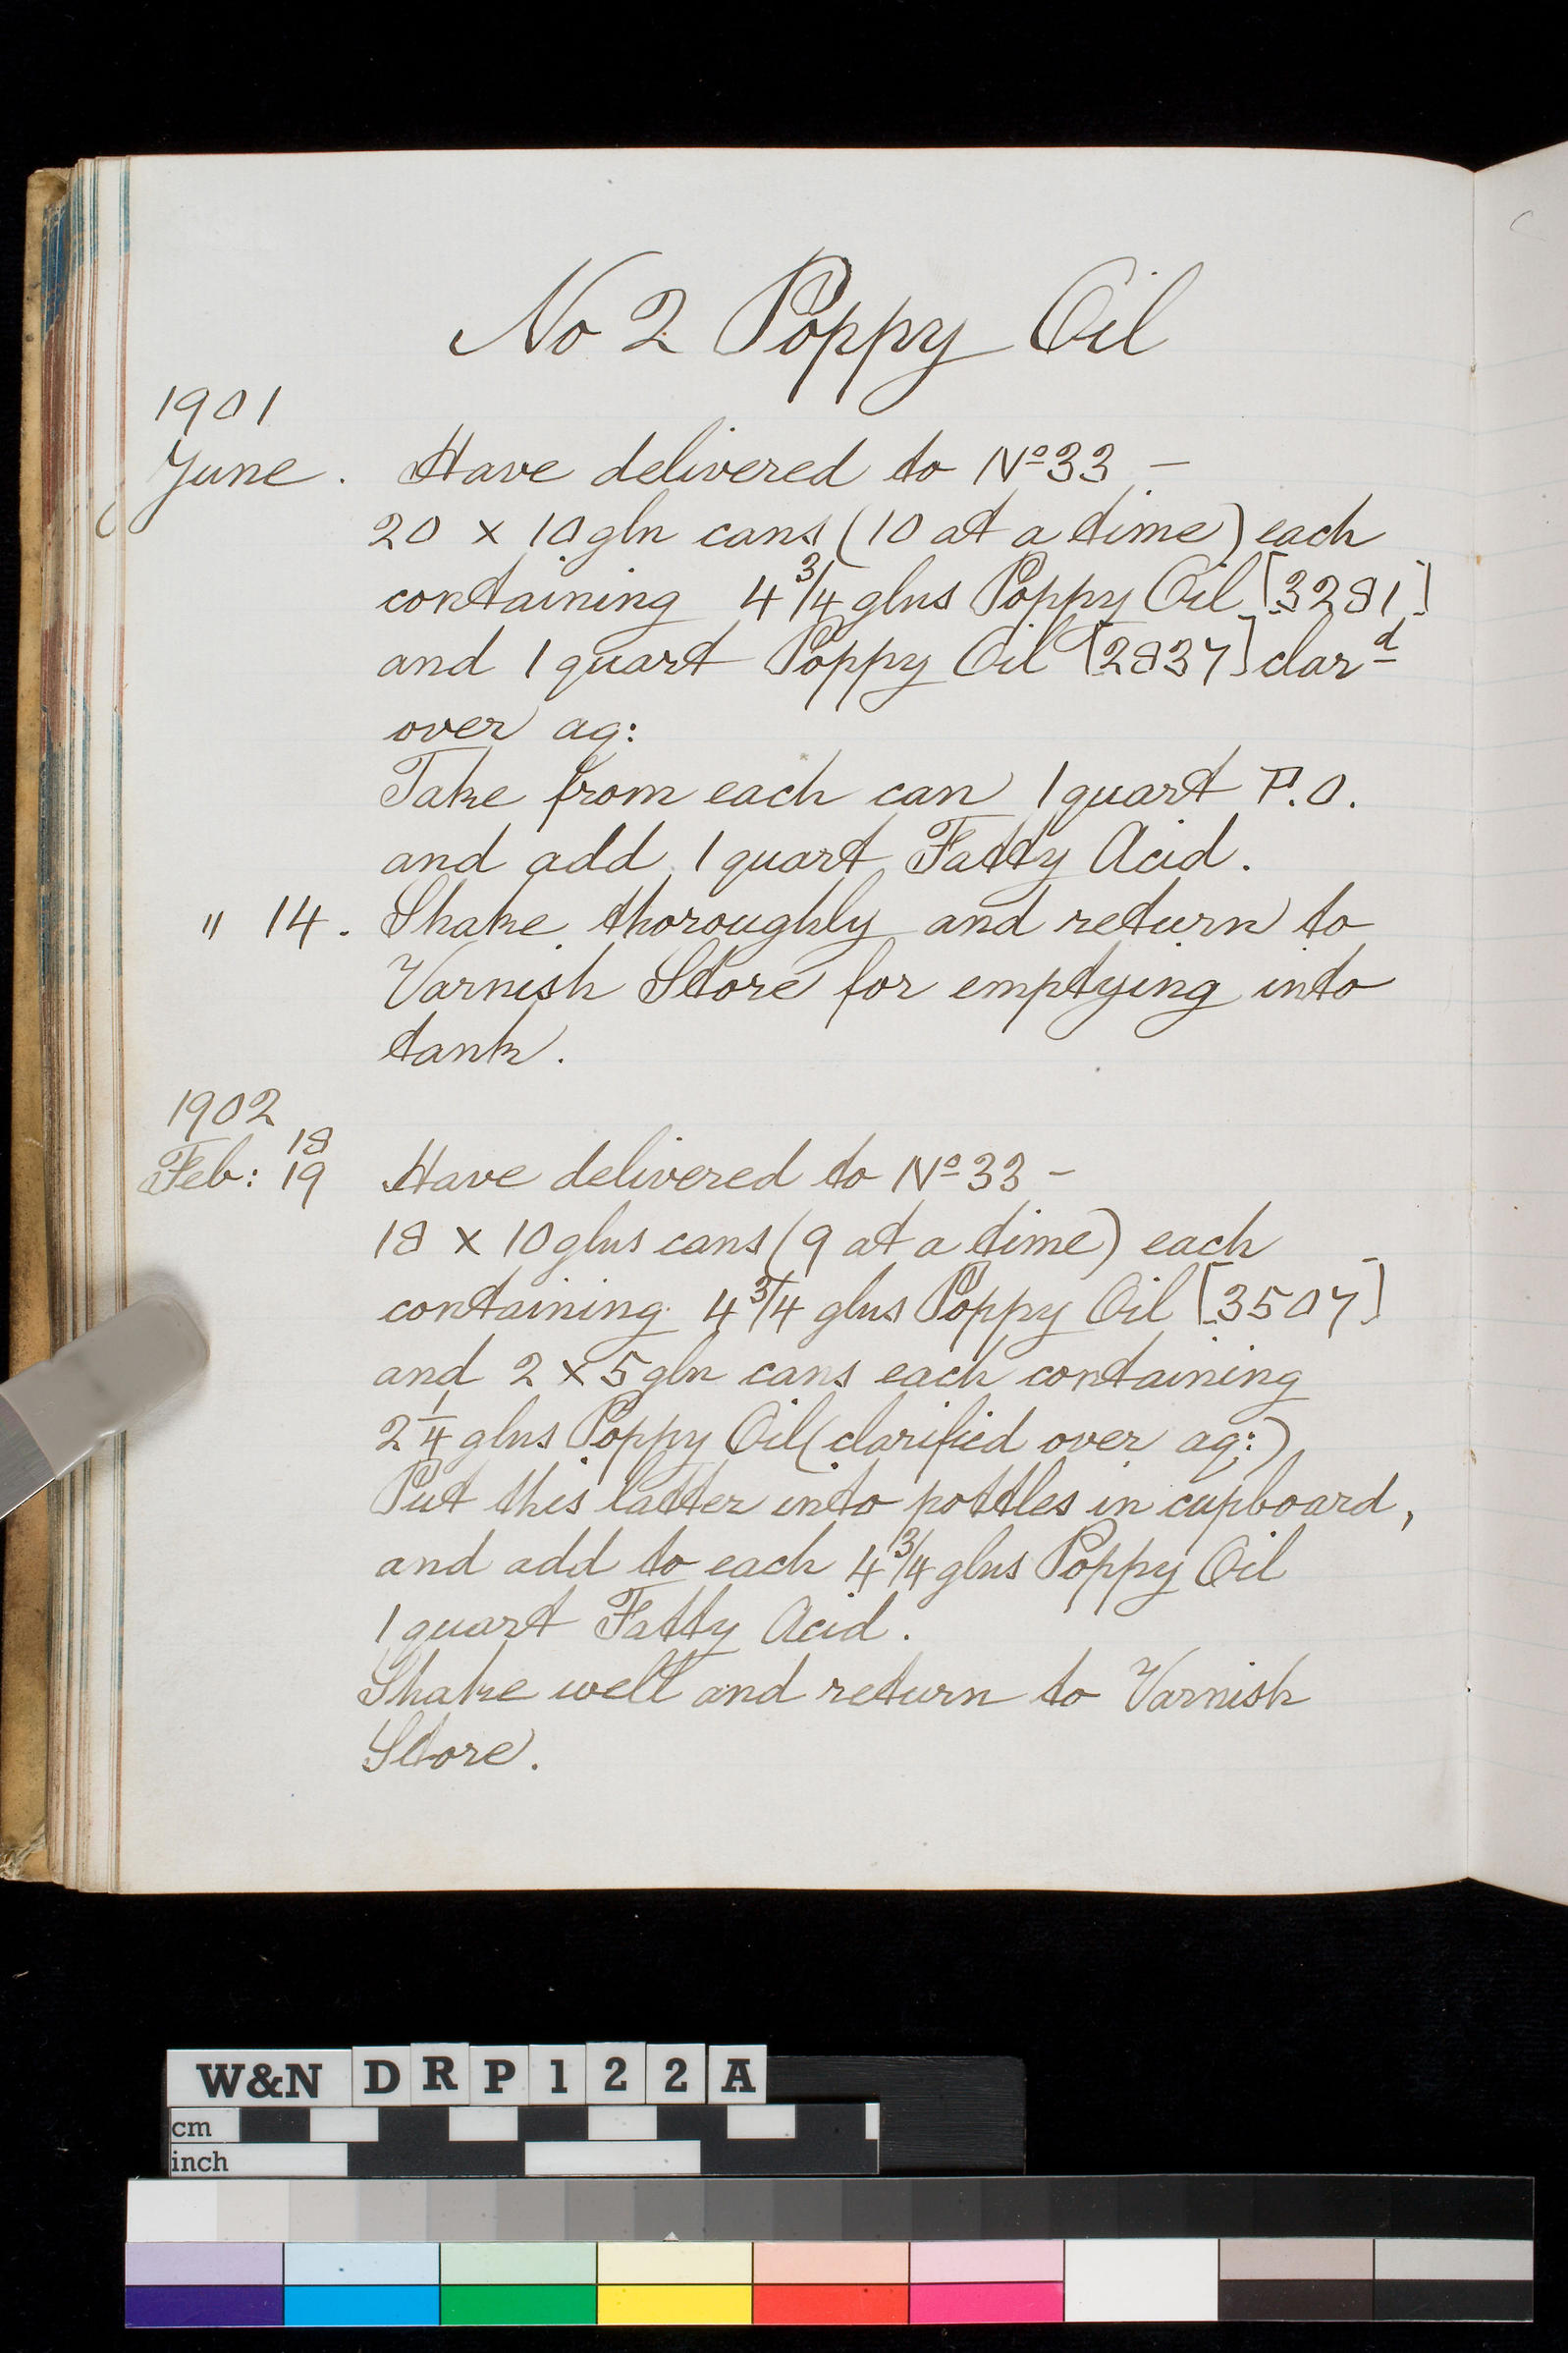 No 2 Poppy Oil
1901
June. Have delivered to Nº 33 –
20 x 10 gln cans (10 at a time) each
containing 4 3/4 glns Poppy Oil [3281]
and 1 quart Poppy Oil [2837] clar^d
over aq:
Take from each can 1 quart P.O.
and add 1 quart Fatty Acid.
" 14. Shake thoroughly and return to
Varnish Store for emptying into
tank.
1902
18
Feb: 19 Have delivered to Nº 33 –
18 x 10 glns cans (9 at a time) each
containing 4 3/4 glns Poppy Oil [3507]
and 2 x 5 gln cans each containing
2 1/4 glns Poppy Oil (clarified over aq:)
Put this latter into pottles in cupboard,
and add to each 4 3/4 glns Poppy Oil
1 quart Fatty Acid.
Shake well and return to Varnish
Store.
W&N DRP122A
cm
inch